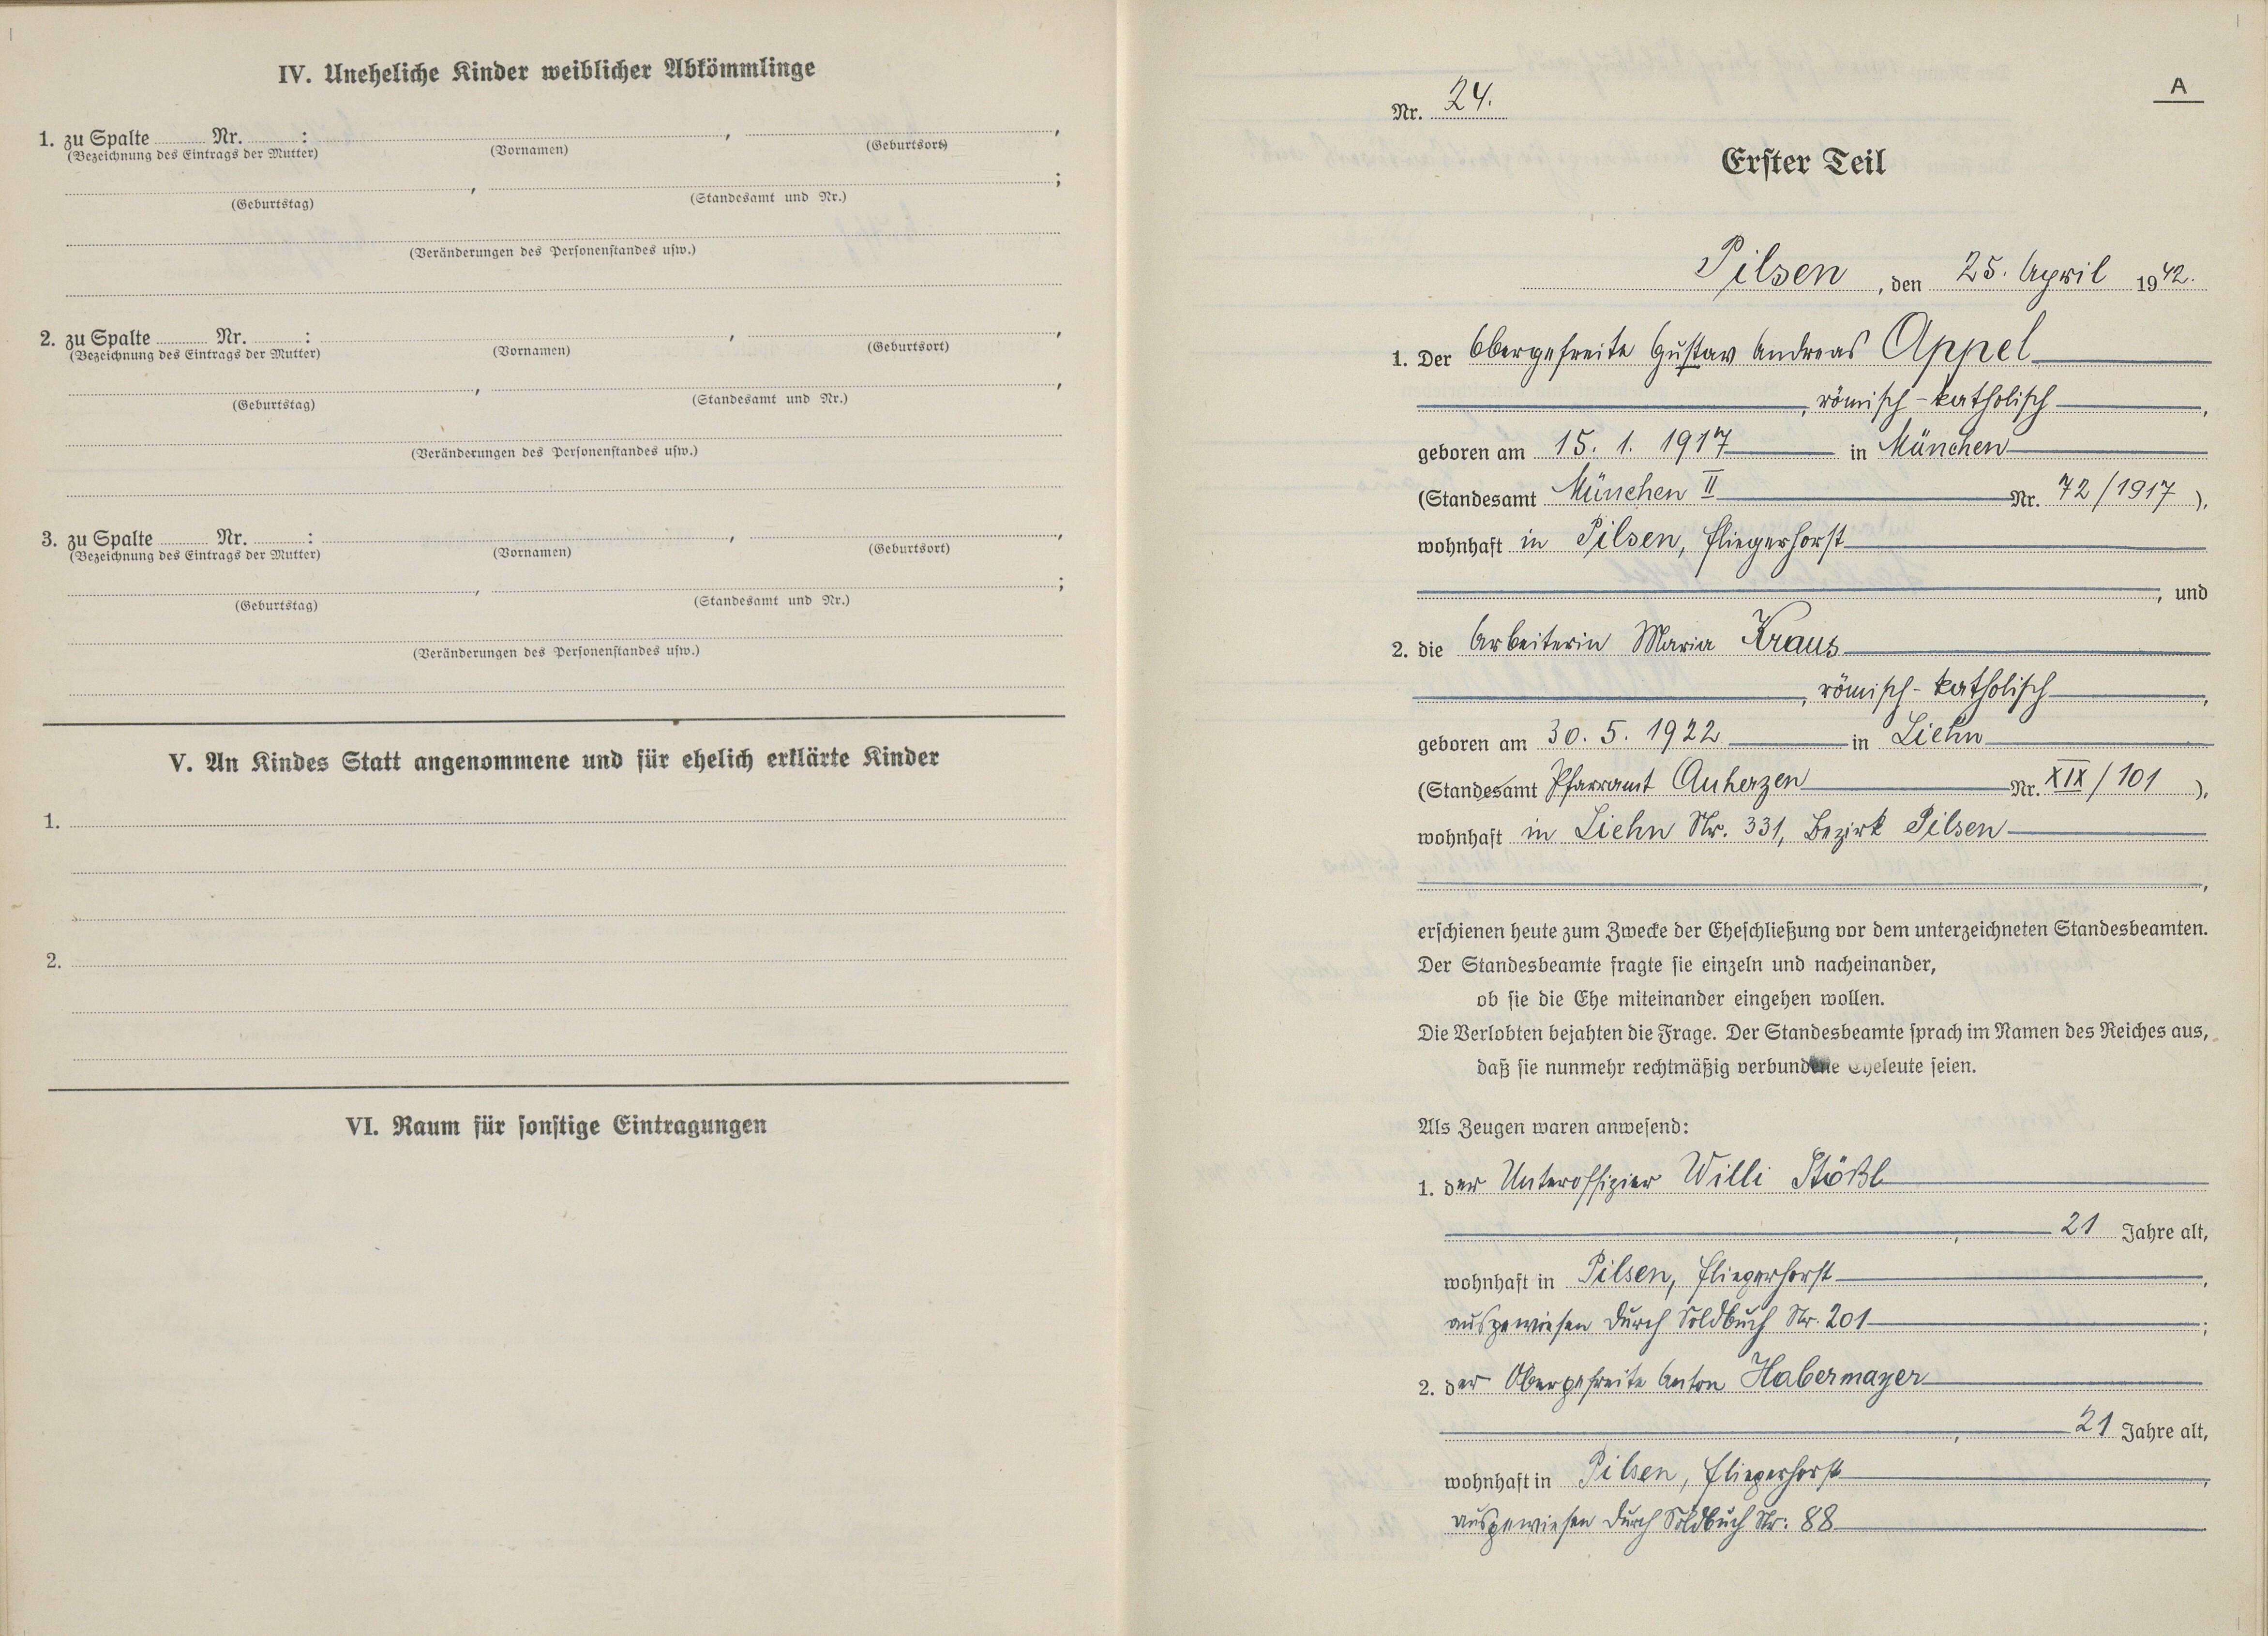 IV. Uneheliche Kinder weiblicher Abkömmlinge
1. zu Spalte ........ Nr. ........ : ........ , ........ ,
(Bezeichnung des Eintrags der Mutter) (Vornamen) (Geburtsort)
........ , ........ ;
(Geburtstag) (Standesamt und Nr.)
(Veränderungen des Personenstandes usw.)
2. zu Spalte ........ Nr. ........ : ........ , ........ ,
(Bezeichnung des Eintrags der Mutter) (Vornamen) (Geburtsort)
........ , ........ ,
(Geburtstag) (Standesamt und Nr.)
(Veränderungen des Personenstandes usw.)
3. zu Spalte ........ Nr. ........ : ........ , ........ ,
(Bezeichnung des Eintrags der Mutter) (Vornamen) (Geburtsort)
........ , ........ ;
(Geburtstag) (Standesamt und Nr.)
(Veränderungen des Personenstandes usw.)
V. An Kindes Statt angenommene und für ehelich erklärte Kinder
1.
2.
VI. Raum für sonstige Eintragungen
A
Nr. 24.
Erster Teil
Pilsen, den 25. April 1942.
1. Der Obergefreite Gustav Andreas Appel
, römisch-katholisch,
geboren am 15. 1. 1917 in München
(Standesamt München II Nr. 72/1917),
wohnhaft in Pilsen, Fliegerhorst
, und
2. die Arbeiterin Maria Kraus
, römisch-katholisch,
geboren am 30. 5. 1922 in Liehn
(Standesamt Pfarramt Auherzen Nr. XIX/101),
wohnhaft in Liehn Nr. 331, Bezirk Pilsen
,
erschienen heute zum Zwecke der Eheschließung vor dem unterzeichneten Standesbeamten.
Der Standesbeamte fragte sie einzeln und nacheinander,
ob sie die Ehe miteinander eingehen wollen.
Die Verlobten bejahten die Frage. Der Standesbeamte sprach im Namen des Reiches aus,
daß sie nunmehr rechtmäßig verbundene Eheleute seien.
Als Zeugen waren anwesend:
1. der Unteroffizier Willi Stößl
, 21 Jahre alt,
wohnhaft in Pilsen, Fliegerhorst,
ausgewiesen durch Soldbuch Nr. 201;
2. der Obergefreite Anton Habermayer
, 21 Jahre alt,
wohnhaft in Pilsen, Fliegerhorst,
ausgewiesen durch Soldbuch Nr: 88